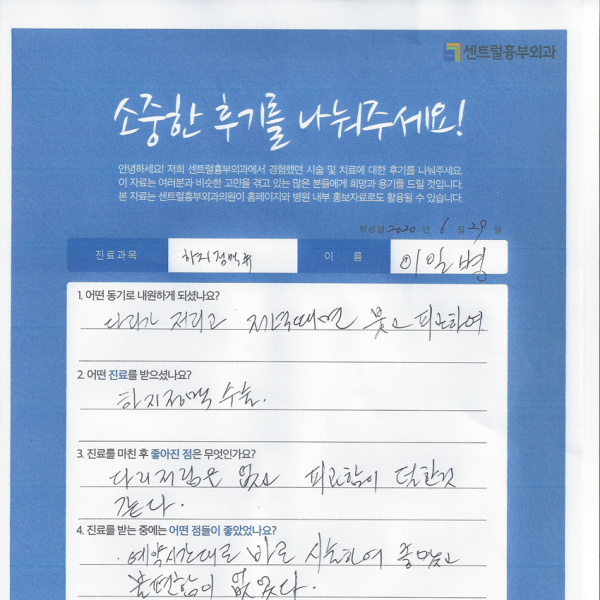 센트럴흉부외과
소중한 후기를 나눠주세요!
안녕하세요! 저희 센트럴흉부외과에서 경험했던 시술 및 치료에 대한 후기를 나눠주세요.
이 자료는 여러분과 비슷한 고민을 겪고 있는 많은 분들에게 희망과 용기를 드릴 것입니다.
본 자료는 센트럴흉부외과의원이 홈페이지와 병원 내부 홍보자료로도 활용될 수 있습니다.
작성일 2020 년 6 월 29 일
진료과목 하지정맥류 이 름 이일병
1. 어떤 동기로 내원하게 되셨나요?
다리가 저리고 저녁때면 붓고 피곤하여
2. 어떤 진료를 받으셨나요?
하지정맥 수술.
3. 진료를 마친 후 좋아진 점은 무엇인가요?
다리저림은 없고 피곤함이 덜한것
같다.
4. 진료를 받는 중에는 어떤 점들이 좋았었나요?
. 예약시간대로 바로 시술하여 좋았고
불편함이 없었다.